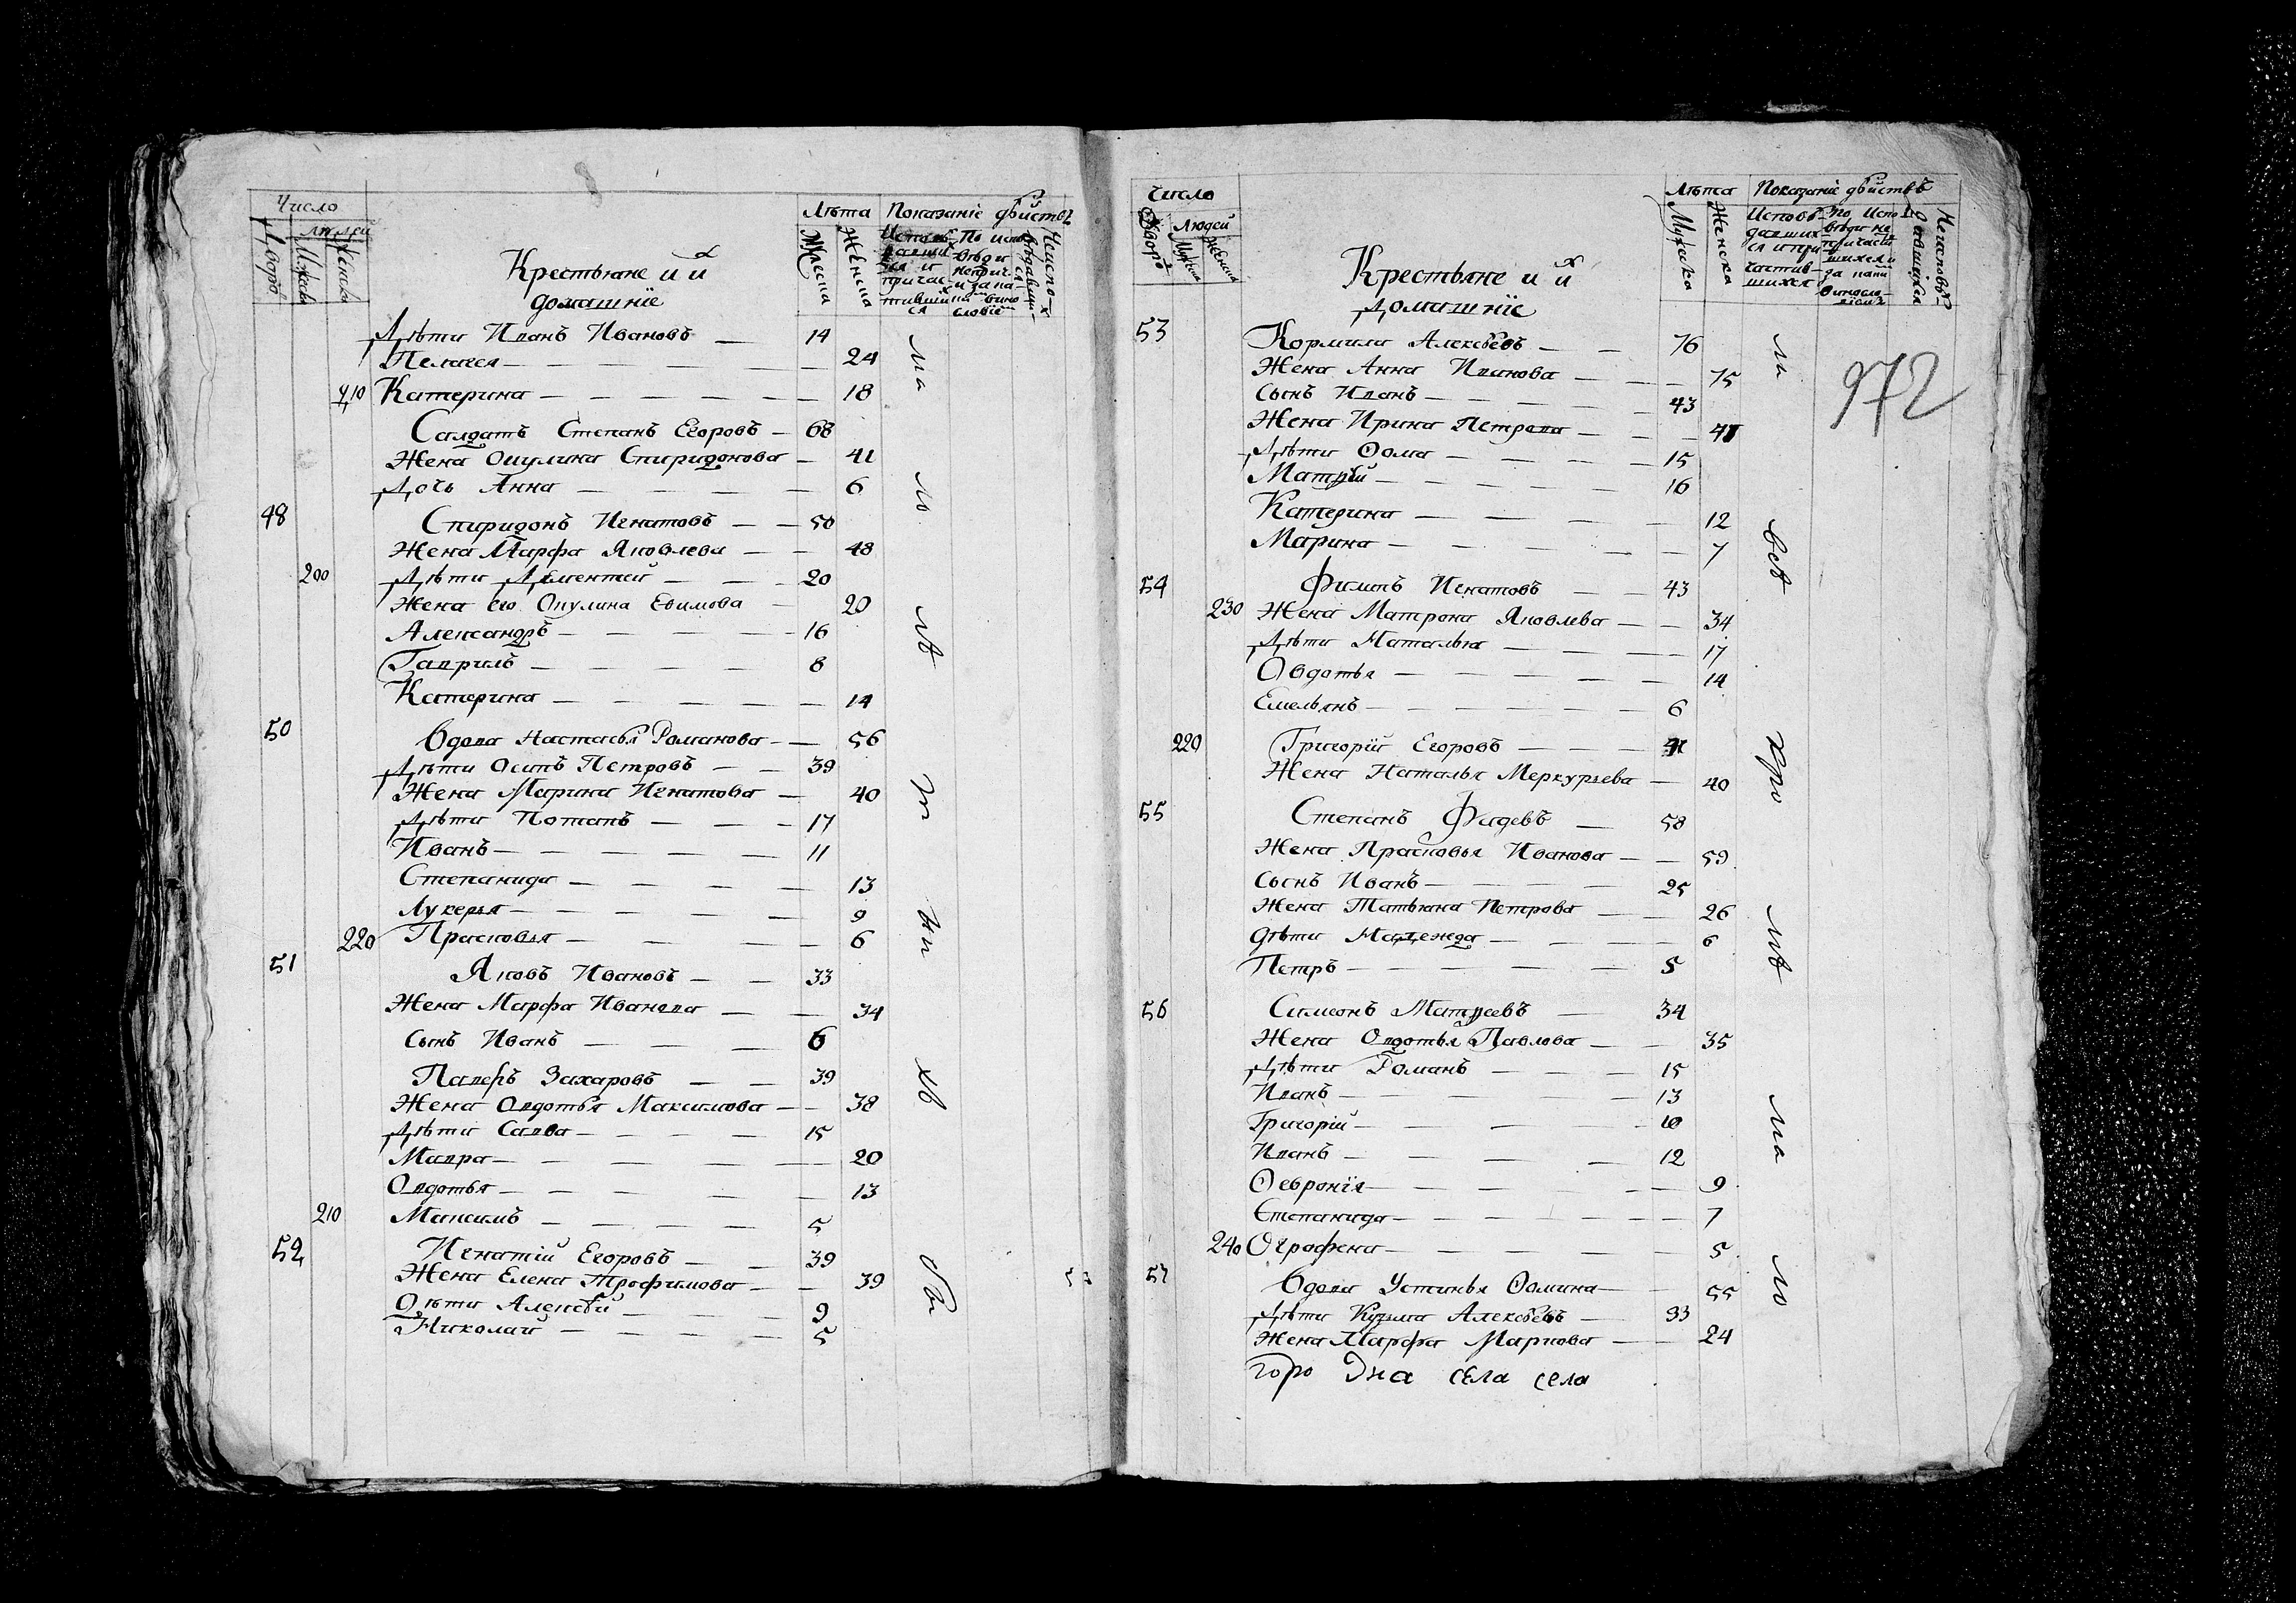 Число
Людей
Дворо
Мужска
Женска
Крестьяне и ихъ
домашніе
Лѣта
Мужска
Женска
Показаніе дѣйствъ
Дѣти Иванъ Ивановъ — 14
Пелагея — 24
210 Катерина — 18
Салдатъ Степанъ Егоровъ — 68
Жена Окулина Спиридонова — 41
Дочь Анна — 6
48 Спиридонъ Игнатовъ — 50
Жена Марфа Яковлева — 48
200 Дѣти Дементей — 20
Жена его Окулина Ефимова — 20
Александръ — 16
Гаврилъ — 8
Катерина — 14
50 Вдова Настасья Романова — 56
Дѣти Осипъ Петровъ — 39
Жена Марина Игнатова — 40
Дѣти Потапъ — 17
Иванъ — 11
Степанида — 13
Лукерья — 9
220 Прасковья — 6
51 Яковъ Ивановъ — 33
Жена Марфа Иванова — 34
Сынъ Иванъ — 6
Захаровъ — 39
Жена Овдотья Максимова — 38
Дѣти Савва — 15
Мавра — 20
Овдотья — 13
210 Максимъ — 5
52 Игнатій Егоровъ — 39
Жена Елена Трофимова — 39
Дѣти Алексѣй — 9
Николай — 5
Число
Дворо
Людей
Мужска
Женска
Крестьяне и ихъ
домашніе
Лѣта
Мужска
Женска
Показаніе дѣйствъ
972
53 Кормила Алексѣевъ — 76
Жена Анна Иванова — 75
Сынъ Иванъ — 43
Жена Ирина Петрова — 41
Дѣти Ѳома — 15
Матѵѣй — 16
Катерина — 12
Марина — 7
54 Филипъ Игнатовъ — 43
230 Жена Матрона Яковлева — 34
Дѣти Наталья — 17
Овдотья — 14
Емельянъ — 6
220 Григорій Егоровъ — 41
Жена Наталья Меркурьева — 40
55 Степанъ Фадевъ — 58
Жена Прасковья Иванова — 59
Сынъ Иванъ — 25
Жена Татьяна Петрова — 26
Дѣти Надежда — 6
Петръ — 5
56 Симеонъ Матвеевъ — 34
Жена Овдотья Павлова — 35
Дѣти Романъ — 15
Иванъ — 13
Григорій — 10
Иванъ — 12
Ѳевронія — 9
Степанида — 7
240 Ографена — 5
57 Вдова Устинья Ѳомина — 55
Дѣти Кузьма Алексѣевъ — 33
Жена Марфа Маркова — 24
горо Дна села села